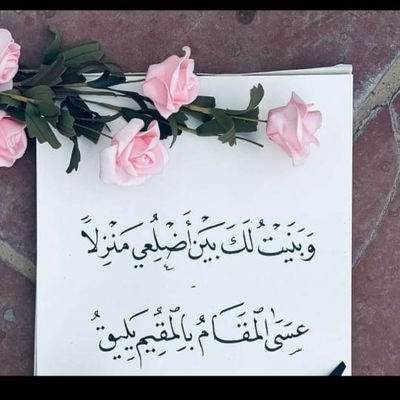 وَبَنَيْتُ لَكَ بَيْنَ أَضْلُعِي مَنْزِلاً
عَسَىٰ الْمَقَامُ بِالْمُقِيمِ يَلِيقُ